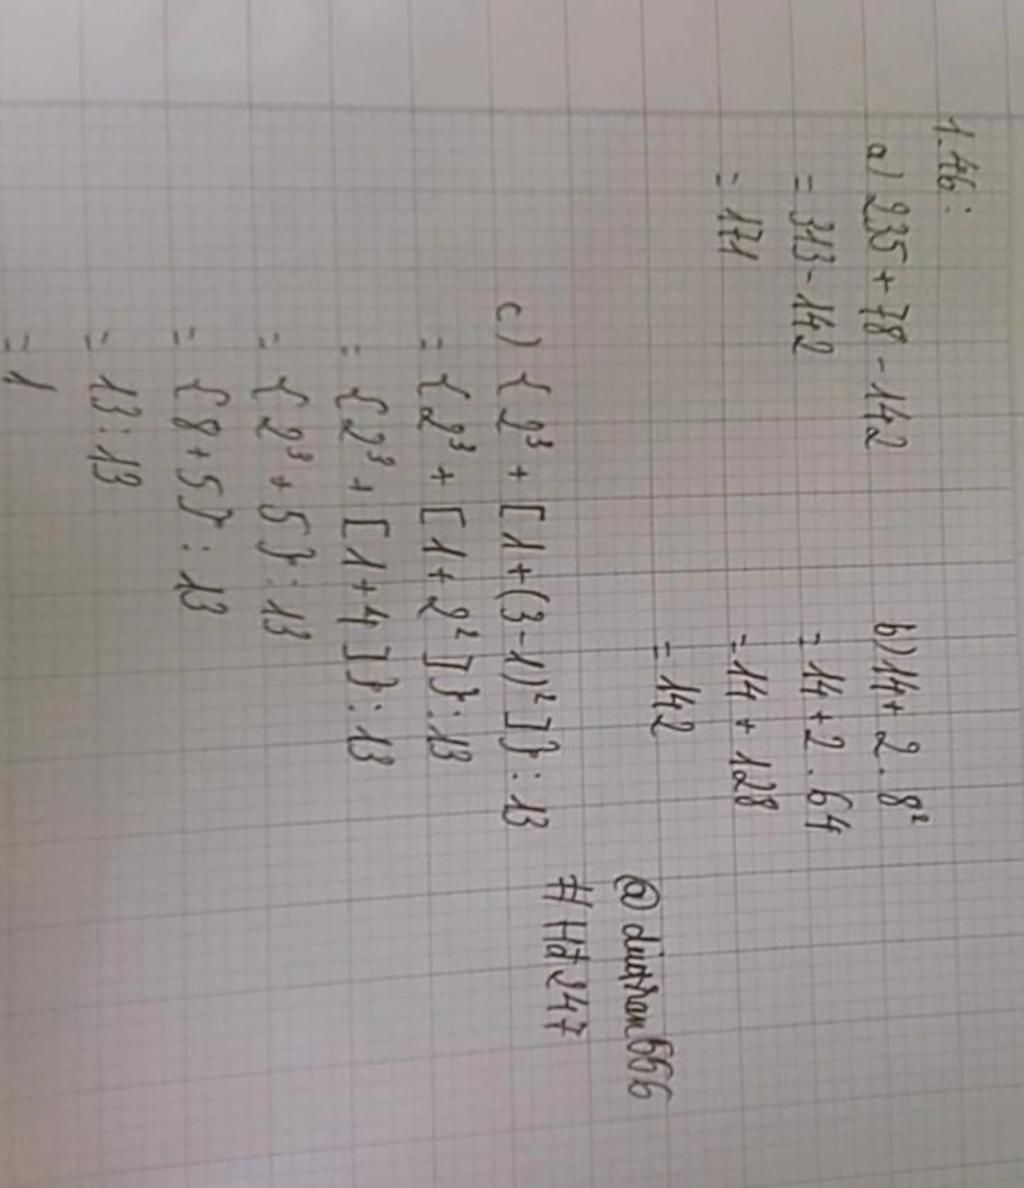 1.46:
a) 235 + 78 - 142
= 313 - 142
= 171
b) 14 + 2 . 8²
= 14 + 2 . 64
= 14 + 128
= 142
c) { 2³ + [ 1 + (3 - 1)² ] } : 13
= { 2³ + [ 1 + 2² ] } : 13
= { 2³ + [ 1 + 4 ] } : 13
= { 2³ + 5 } : 13
= { 8 + 5 } : 13
= 13 : 13
= 1
#Hd247